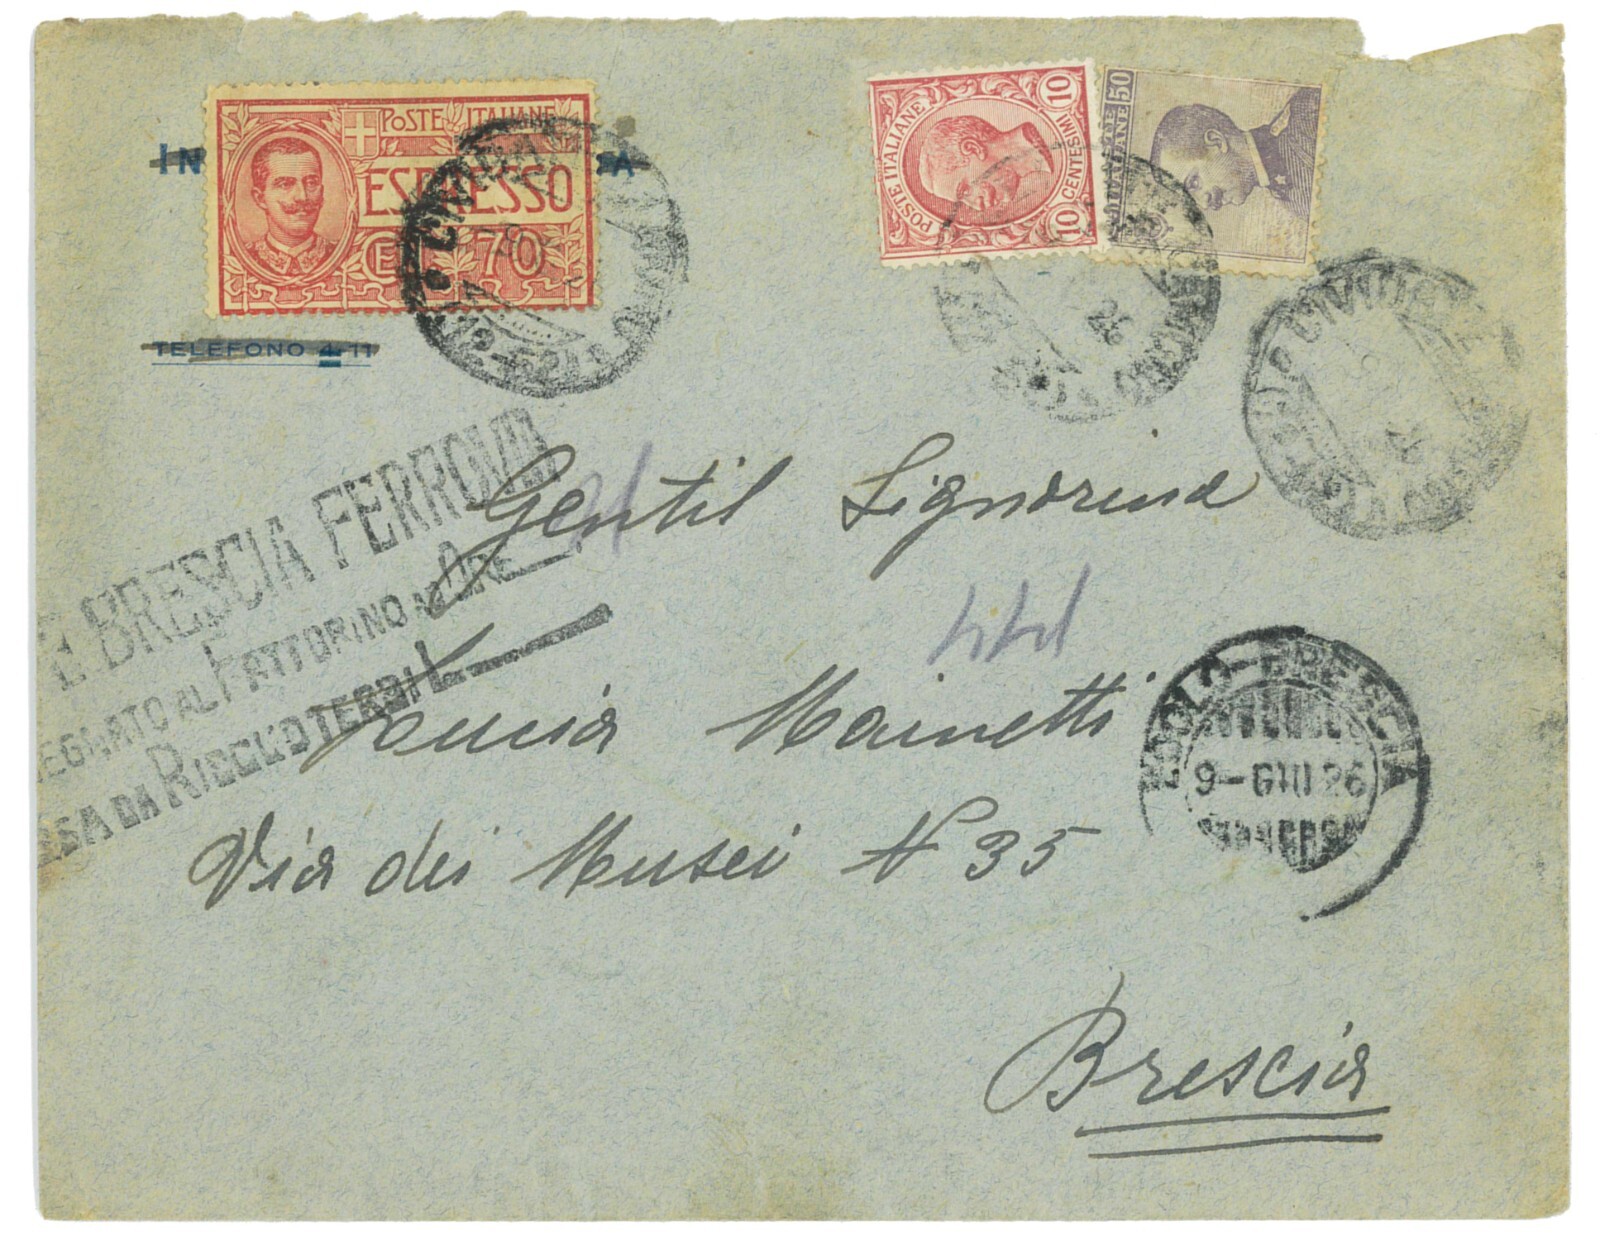 POSTE ITALIANE
ESPRESSO
70
POSTE ITALIANE
10 CENTESIMI 10
50
TELEFONO 4-11
BRESCIA FERROVIA
AL FATTORINO AD ORE
DA RISCUOTERSI L
Gentil Signorina
Lucia Mainetti
Via dei Musei N 35
Brescia
BRESCIA
9-GIU 26